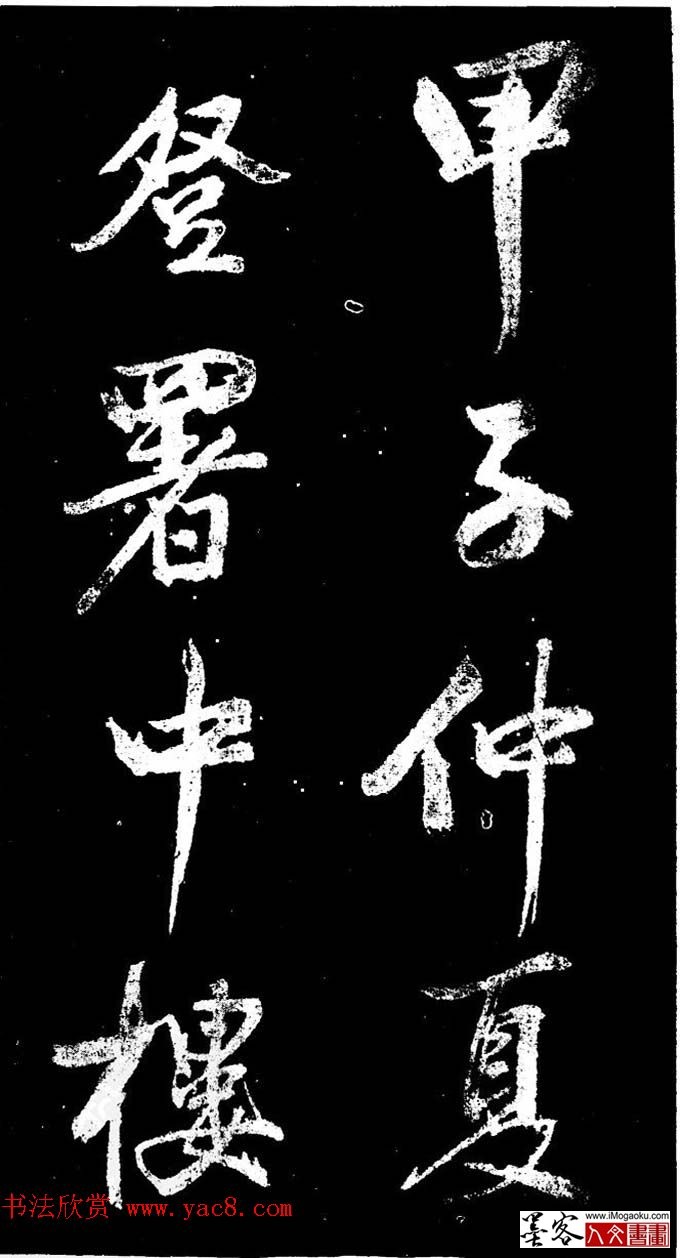 甲子仲夏
登署中樓
书法欣赏 www.yac8.com
墨客 www.iMogaoku.com
人文書畫